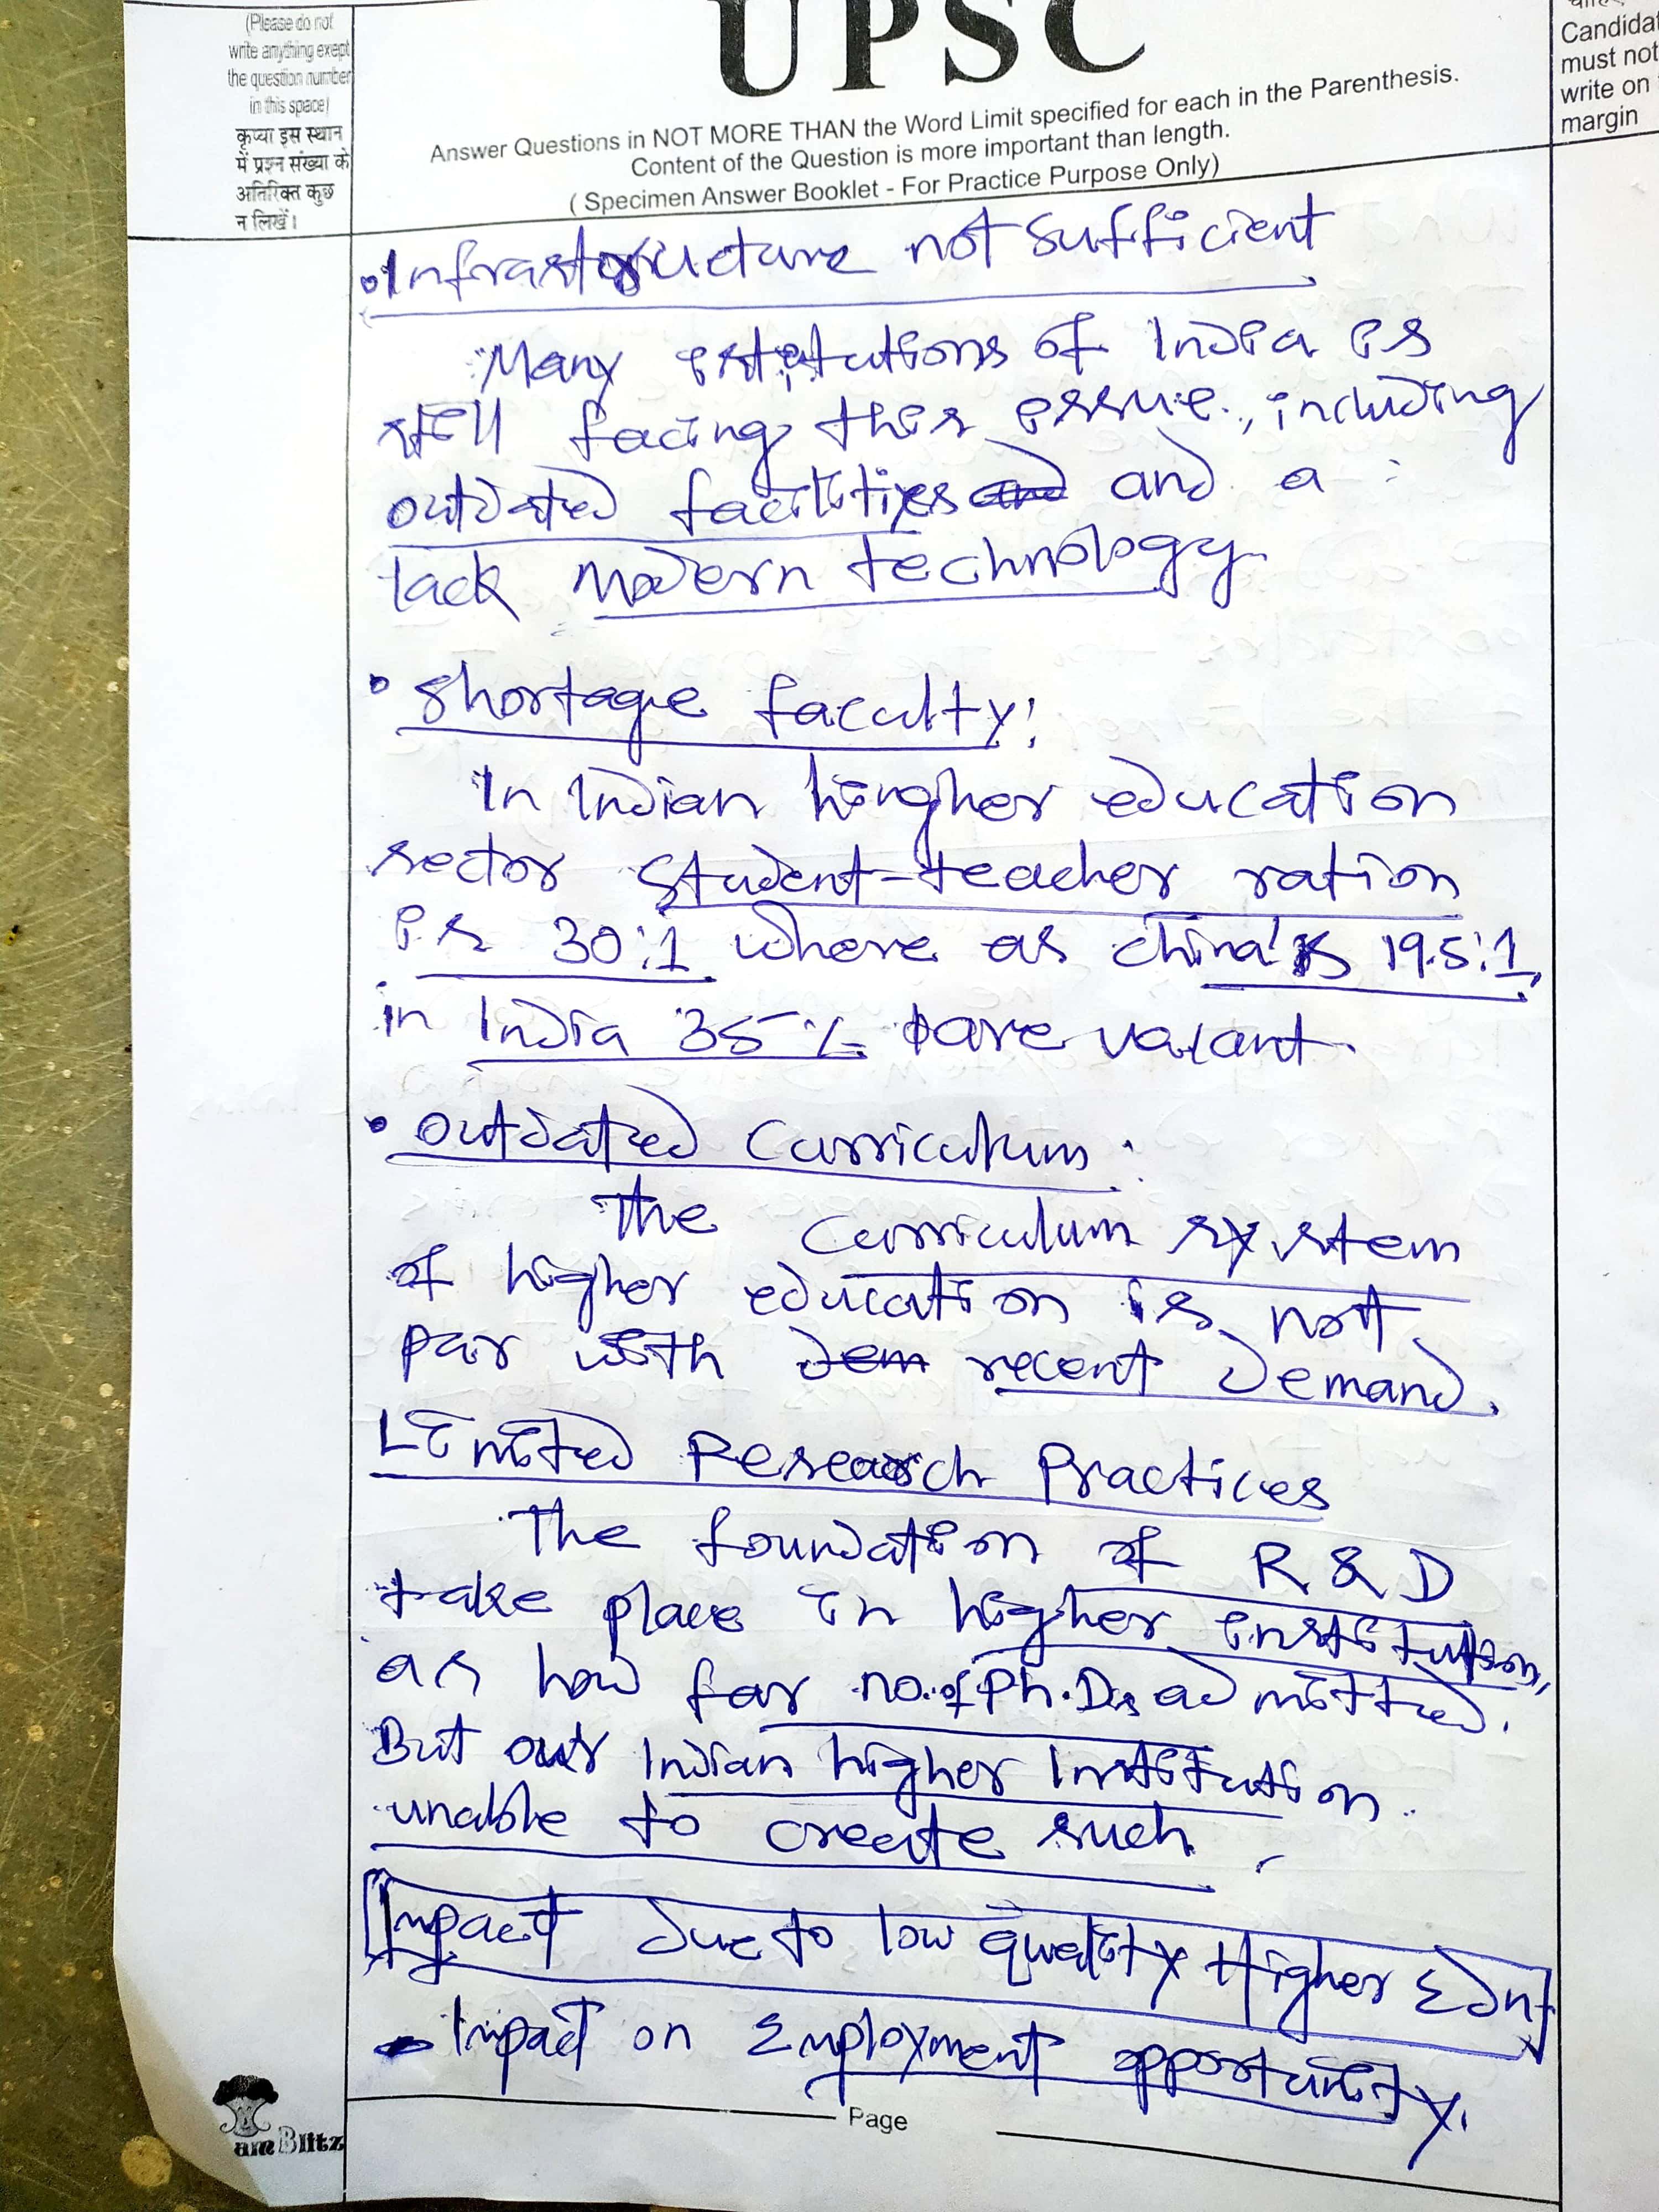 (Please do not
write anything exept
the question number
in this space)
कृप्या इस स्थान
में प्रश्न संख्या के
अतिरिक्त कुछ
न लिखें।
UPSC
Answer Questions in NOT MORE THAN the Word Limit specified for each in the Parenthesis.
Content of the Question is more important than length.
( Specimen Answer Booklet - For Practice Purpose Only)
Candidat
must not
write on
margin
• Infrastructure not sufficient
Many institutions of India is
still facing this issue, including
outdated facilities and and a
lack modern technology
• Shortage faculty:
In Indian hingher education
sector Student-teacher ration
is 30:1 where as China's 19.5:1,
in India 35% are vacant.
• Outdated Curriculum :
The curriculum system
of higher education is not
par with dem recent demand.
Limited Research Practices
The foundation of R & D
take place in higher institution,
as how far no. of Ph.Ds admitted.
But our Indian higher Institution
unable to create such
Impact due to low quality Higher Edn
- Impact on Employment opportunity.
Page
am Blitz